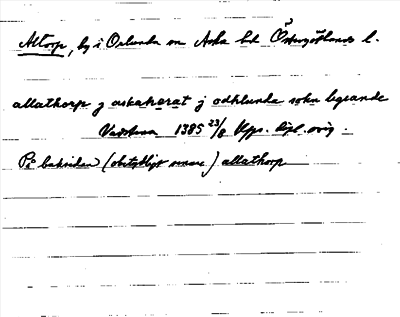 Altorp, by i Orlunda sn Aska hd Östergötlands l.
allathorp j askahærat j odhlunda sokn legiande
Vadstena 1385 23/8 Upps. dipl. orig.
På baksidan (obetydligt senare) allathorp